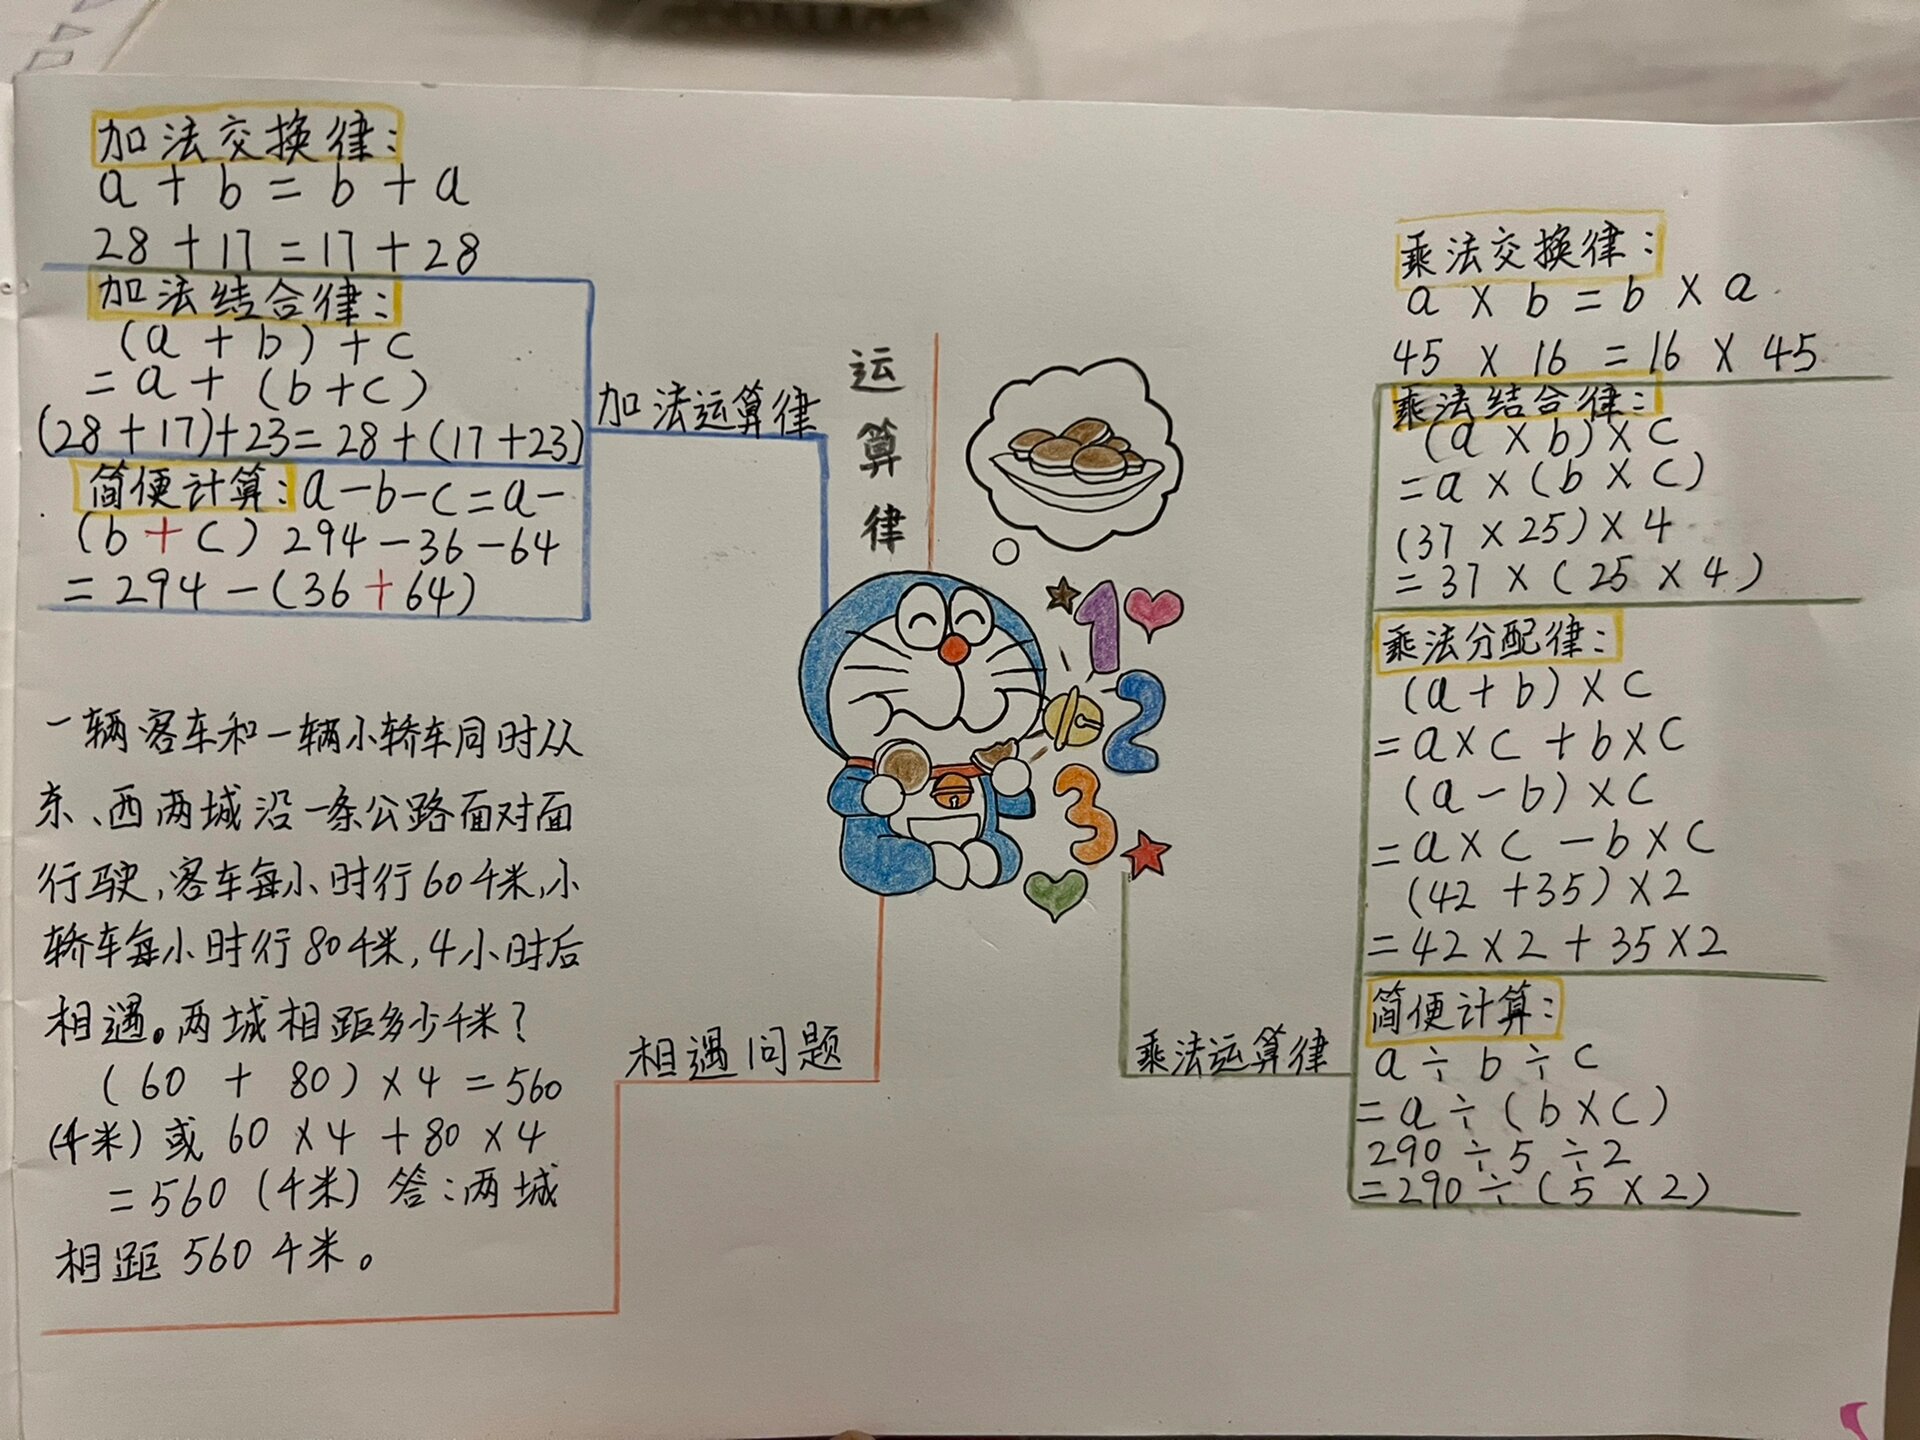 加法交换律:
a + b = b + a
28 + 17 = 17 + 28
加法结合律:
(a + b) + c
= a + (b + c)
(28 + 17) + 23 = 28 + (17 + 23)
简便计算: a - b - c = a -
(b + c) 294 - 36 - 64
= 294 - (36 + 64)
加法运算律
运
算
律
1
2
3
一辆客车和一辆小轿车同时从
东、西两城沿一条公路面对面
行驶,客车每小时行60千米,小
轿车每小时行80千米,4小时后
相遇。两城相距多少千米?
(60 + 80) × 4 = 560
(千米) 或 60 × 4 + 80 × 4
= 560 (千米) 答:两城
相距 560 千米。
相遇问题
乘法运算律
乘法交换律:
a × b = b × a
45 × 16 = 16 × 45
乘法结合律:
(a × b) × c
= a × (b × c)
(37 × 25) × 4
= 37 × (25 × 4)
乘法分配律:
(a + b) × c
= a × c + b × c
(a - b) × c
= a × c - b × c
(42 + 35) × 2
= 42 × 2 + 35 × 2
简便计算:
a ÷ b ÷ c
= a ÷ (b × c)
290 ÷ 5 ÷ 2
= 290 ÷ (5 × 2)